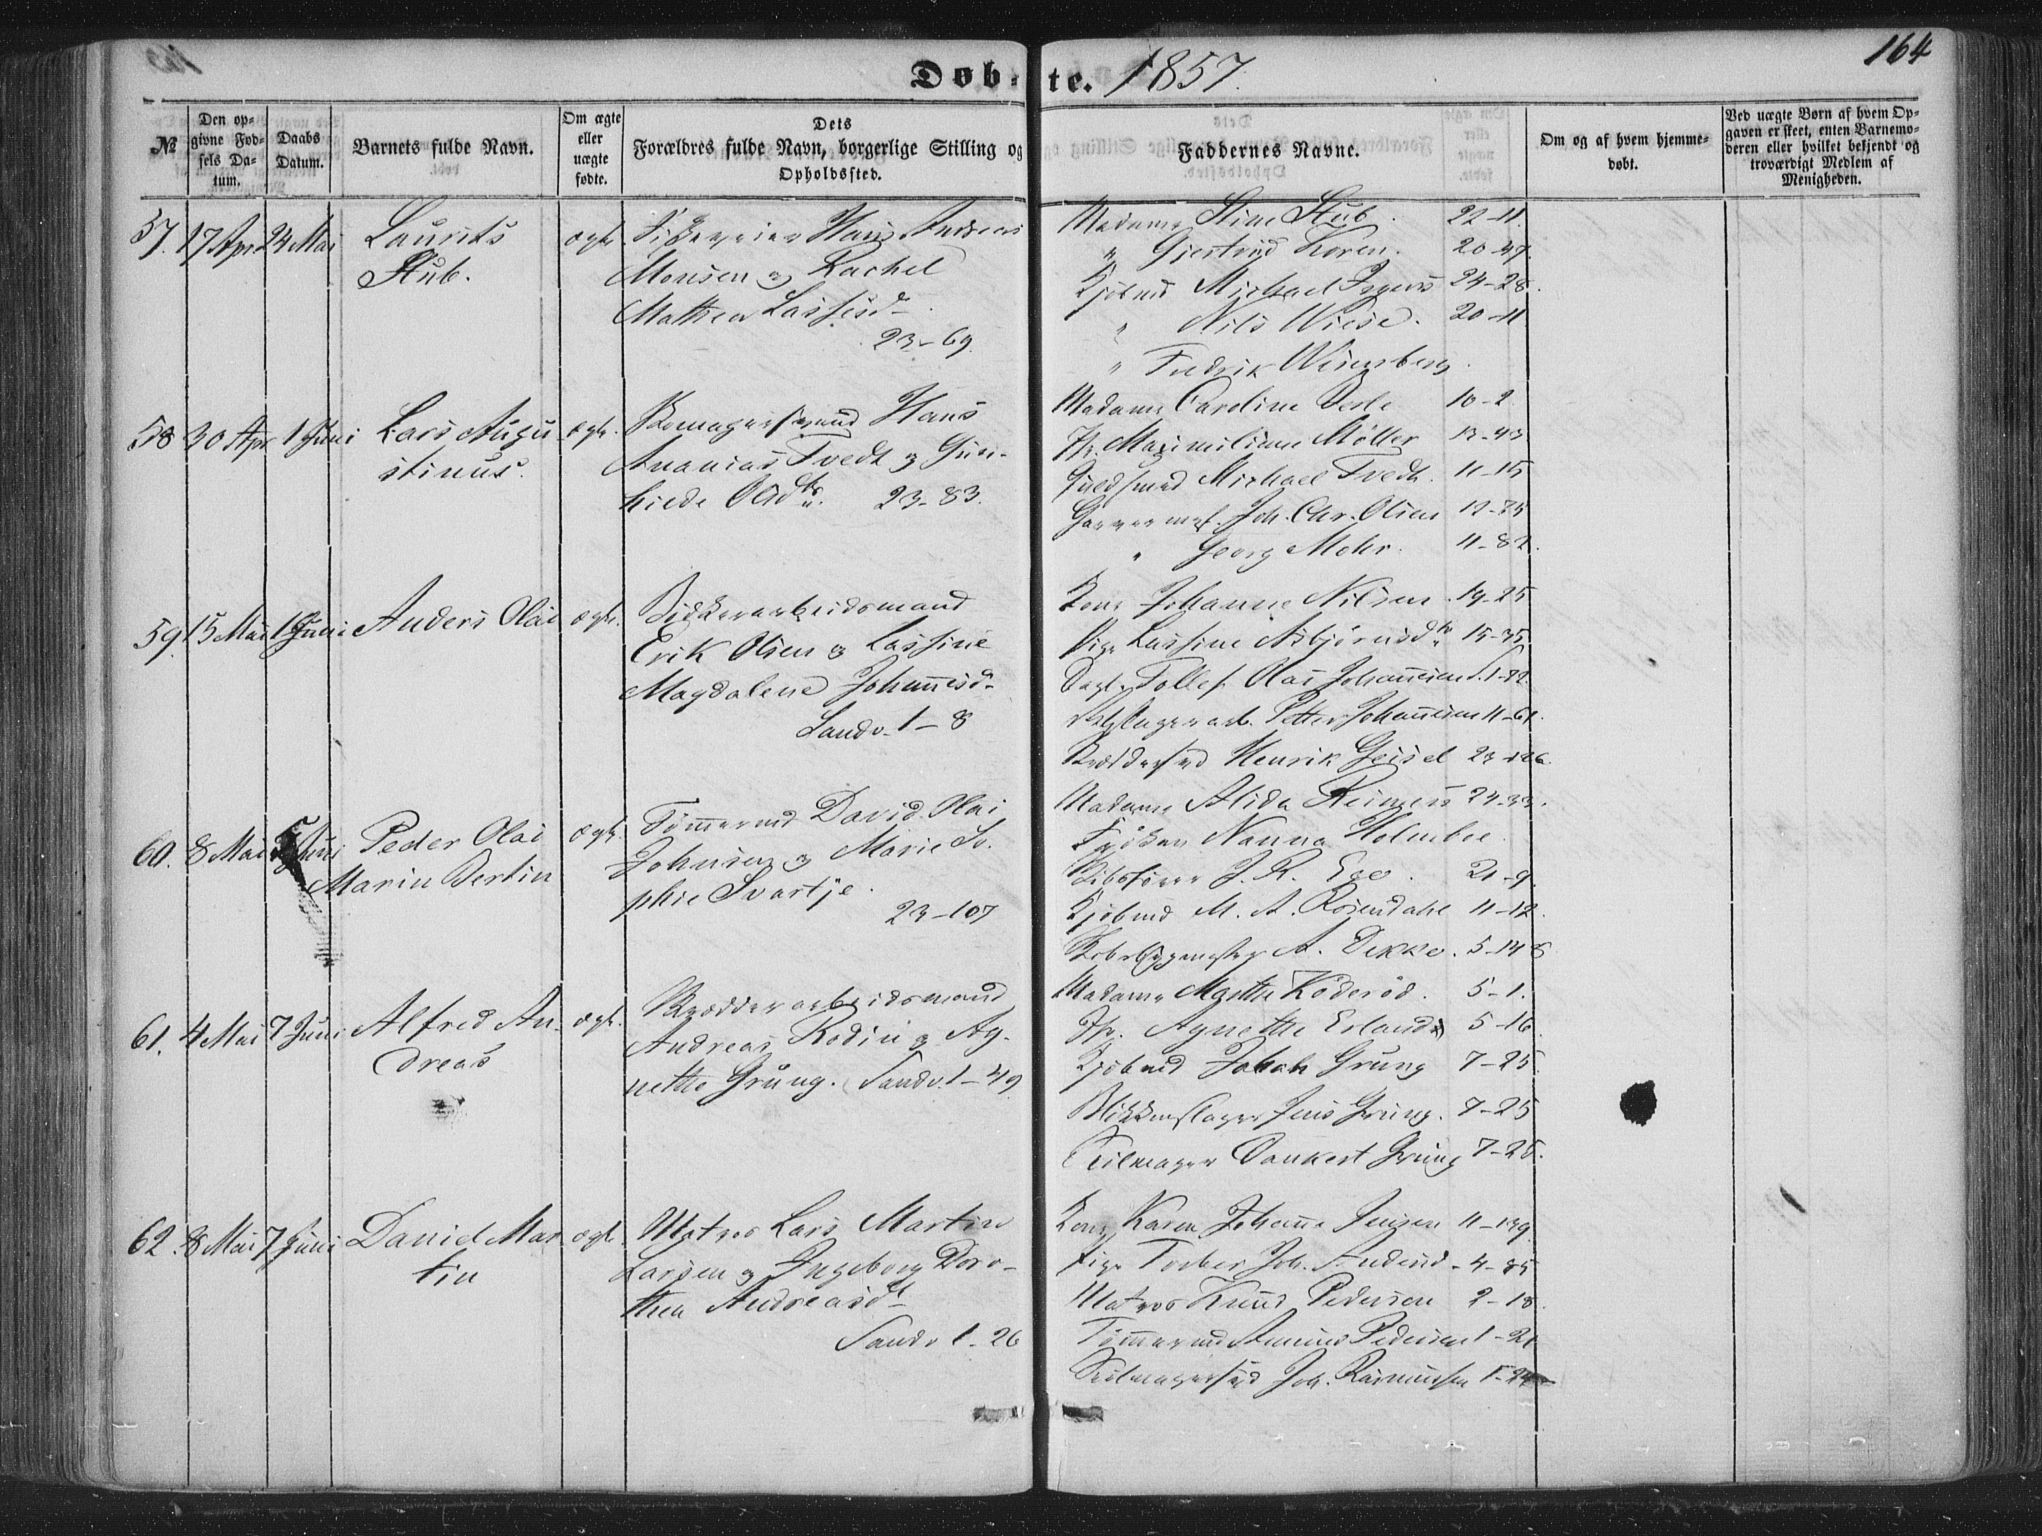 164
Døbte. 1857.
№
Den opgivne Fødsels Datum.
Daabs Datum.
Barnets fulde Navn.
Om ægte eller uægte fødte.
Dets Forældres fulde Navn, borgerlige Stilling og Opholdssted.
Faddernes Navne.
Om og af hvem hjemmedøbt.
Ved uægte Børn af hvem Opgaven er skeet, enten Barnemoderen eller hvilket bekjendt og troværdigt Medlem af Menigheden.
57. 17 Apr 24 Mai
Laurits
Stub.
ægte
Hans Andreas
Monsen og Rachel
Mathea Lassesd
23-69.
Madame Stine Stub. 22-11.
" Gjertrud Koren. 20-47.
Kjøbmd Michael 24-28.
" Nils Wiese. 20-11
" Fredrik Wineberg.
58 30 Apr 1 Juni
Lars Augu
stinus.
ægte.
Hans
Ananias Tvedt og Gun-
hilde Olsdtr. 23-83.
Madame Caroline 10-2
Jfr. Maximiliane Møller 13-43
Guldsmed Michael Tvedt. 11-15
Joh. Chr. Olsen 12-75
" Georg Mohr. 11-82.
59. 15 Mai 1 Juni
Anders Olai
ægte.
Bødkerarbeidsmand
Erik Olsen og Lassine
Magdalene Johannesd-
Sandv. 1-8
Kone Johanne Nilsen. 19-25
Pige Lassine Asbjørnsdtr 15-35.
Tollef Olai Johannesen 1-72.
Petter Johannesen 11-61.
Henrik Geisel 23-126.
60. 8 Mai Juni
Peder Olai
Marin Bertin
ægte.
Tømmermd David Olai
Johnsen og Marie So-
phie Svartje.
23-107
Madame Alida 24-33.
Frøken Nanna Holmboe.
J. R. 21-9.
Kjøbmd M. A. Rosendahl 11-12.
A. Dekke. 5-148
61. 4 Mai 7 Juni
Alfred An-
dreas
ægte.
Brødderarbeidsmand
Andreas Rodin og Ag-
nethe Grüng. Sandv. 1-49
Madame Marthe Røderød. 5-1.
Jfr. Agnethe Erland 5-16.
Kjøbmd Johan Grung 7-25.
Blikkenslager Jens Grüng. 7-25
Seilmager Dankert Grüng 7-25.
62. 8 Mai 7 Juni
Daniel Mar
tin
ægte.
Matros Lars Martin
Larsen og Ingeborg Doro-
thea Andreasdt
Sandv 1-26
Kone Karen Johanne Jensen 11-139.
Pige Joh. 4-85
Matros Knud Pedersen 2-18.
Tømmermd Pedersen 1-21
Seilmagersvd Joh. Rasmussen 1-24